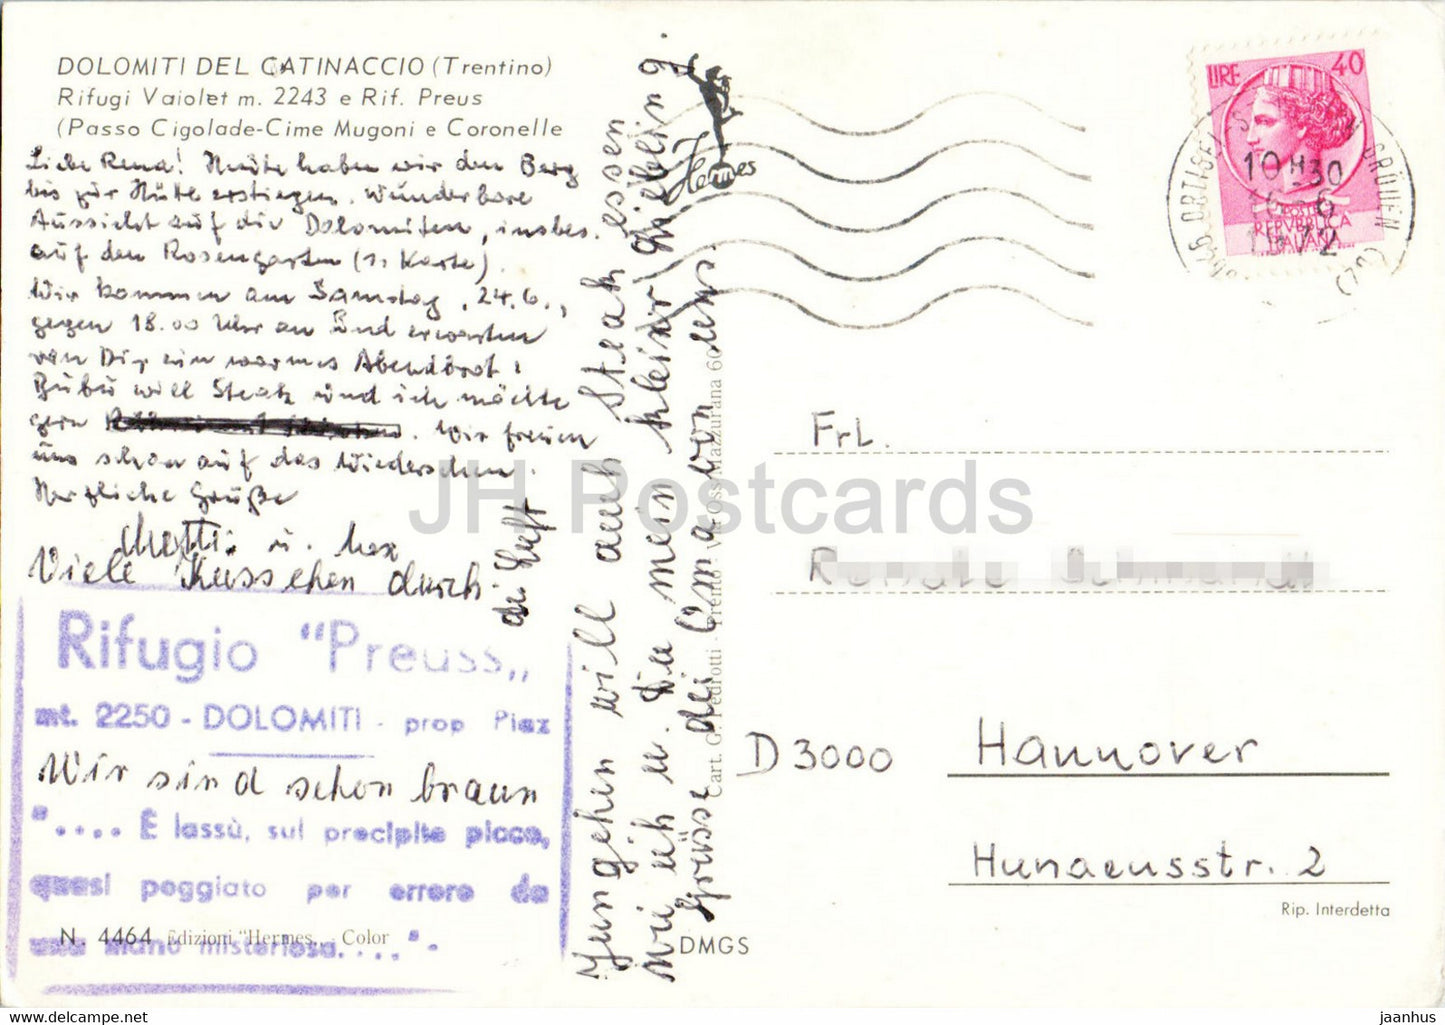 DOLOMITI DEL CATINACCIO (Trentino)
Rifugi Vaiolet m. 2243 e Rif. Preus
(Passo Cigolade-Cime Mugoni e Coronelle
Liebe Rena! Heute haben wir den Berg
bis zur Hütte erstiegen. Wunderbare
Aussicht auf die Dolomiten, insbes.
auf den Rosengarten (1. Karte).
Wir kommen am Samstag, 24.6.,
gegen 18.00 Uhr an und erwarten
von Dir ein warmes Abendbrot:
Bubu will Steak und ich möchte
gern. Wir freuen
uns schon auf das Wiedersehen.
Herzliche Grüße
u.
Viele Küsschen durch
die Luft
Rifugio "Preuss„
mt. 2250 - DOLOMITI - prop Piaz
Wir sind schon braun
".... È lassù, sul precipite picco,
quasi poggiato per errore da
una mano misteriosa...."-
N. 4464 Edizioni "Hermes„ - Color
Jungchen will auch Steak essen
wie ich u. Du mein kleiner Liebling.
Grüsse die Oma von uns
Cart. G. Pedrotti - Trento - Mazzurana 60
DMGS
Hermes
LIRE 40
POSTE
REPVBBLICA
ITALIANA
39046 ORTISEI - GRÖDEN (BZ)
10 H-30
JH Postcards
Frl.
D 3000 Hannover
Hunaeusstr. 2
Rip. Interdetta
jaanhus